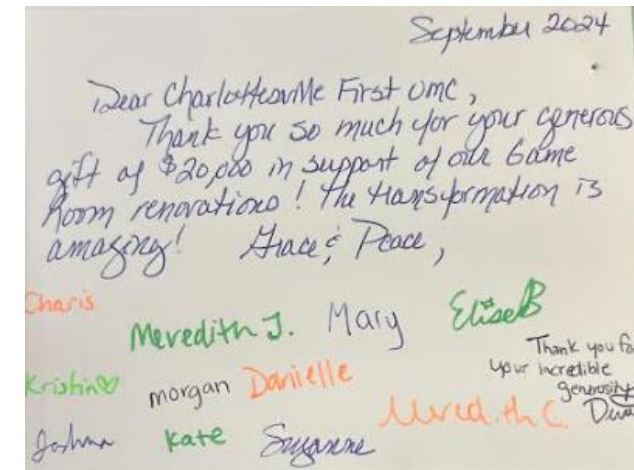 September 2024
Dear Charlottesville First UMC,
Thank you so much for your generous
gift of $20,000 in support of our Game
Room renovations! The transformation is
amazing! Grace & Peace,
Charis
Meredith J. Mary EliseB
Kristin♡ morgan Danielle
Thank you fo
your incredible
generosity
Meredith C.
Joshua Kate Suzanne